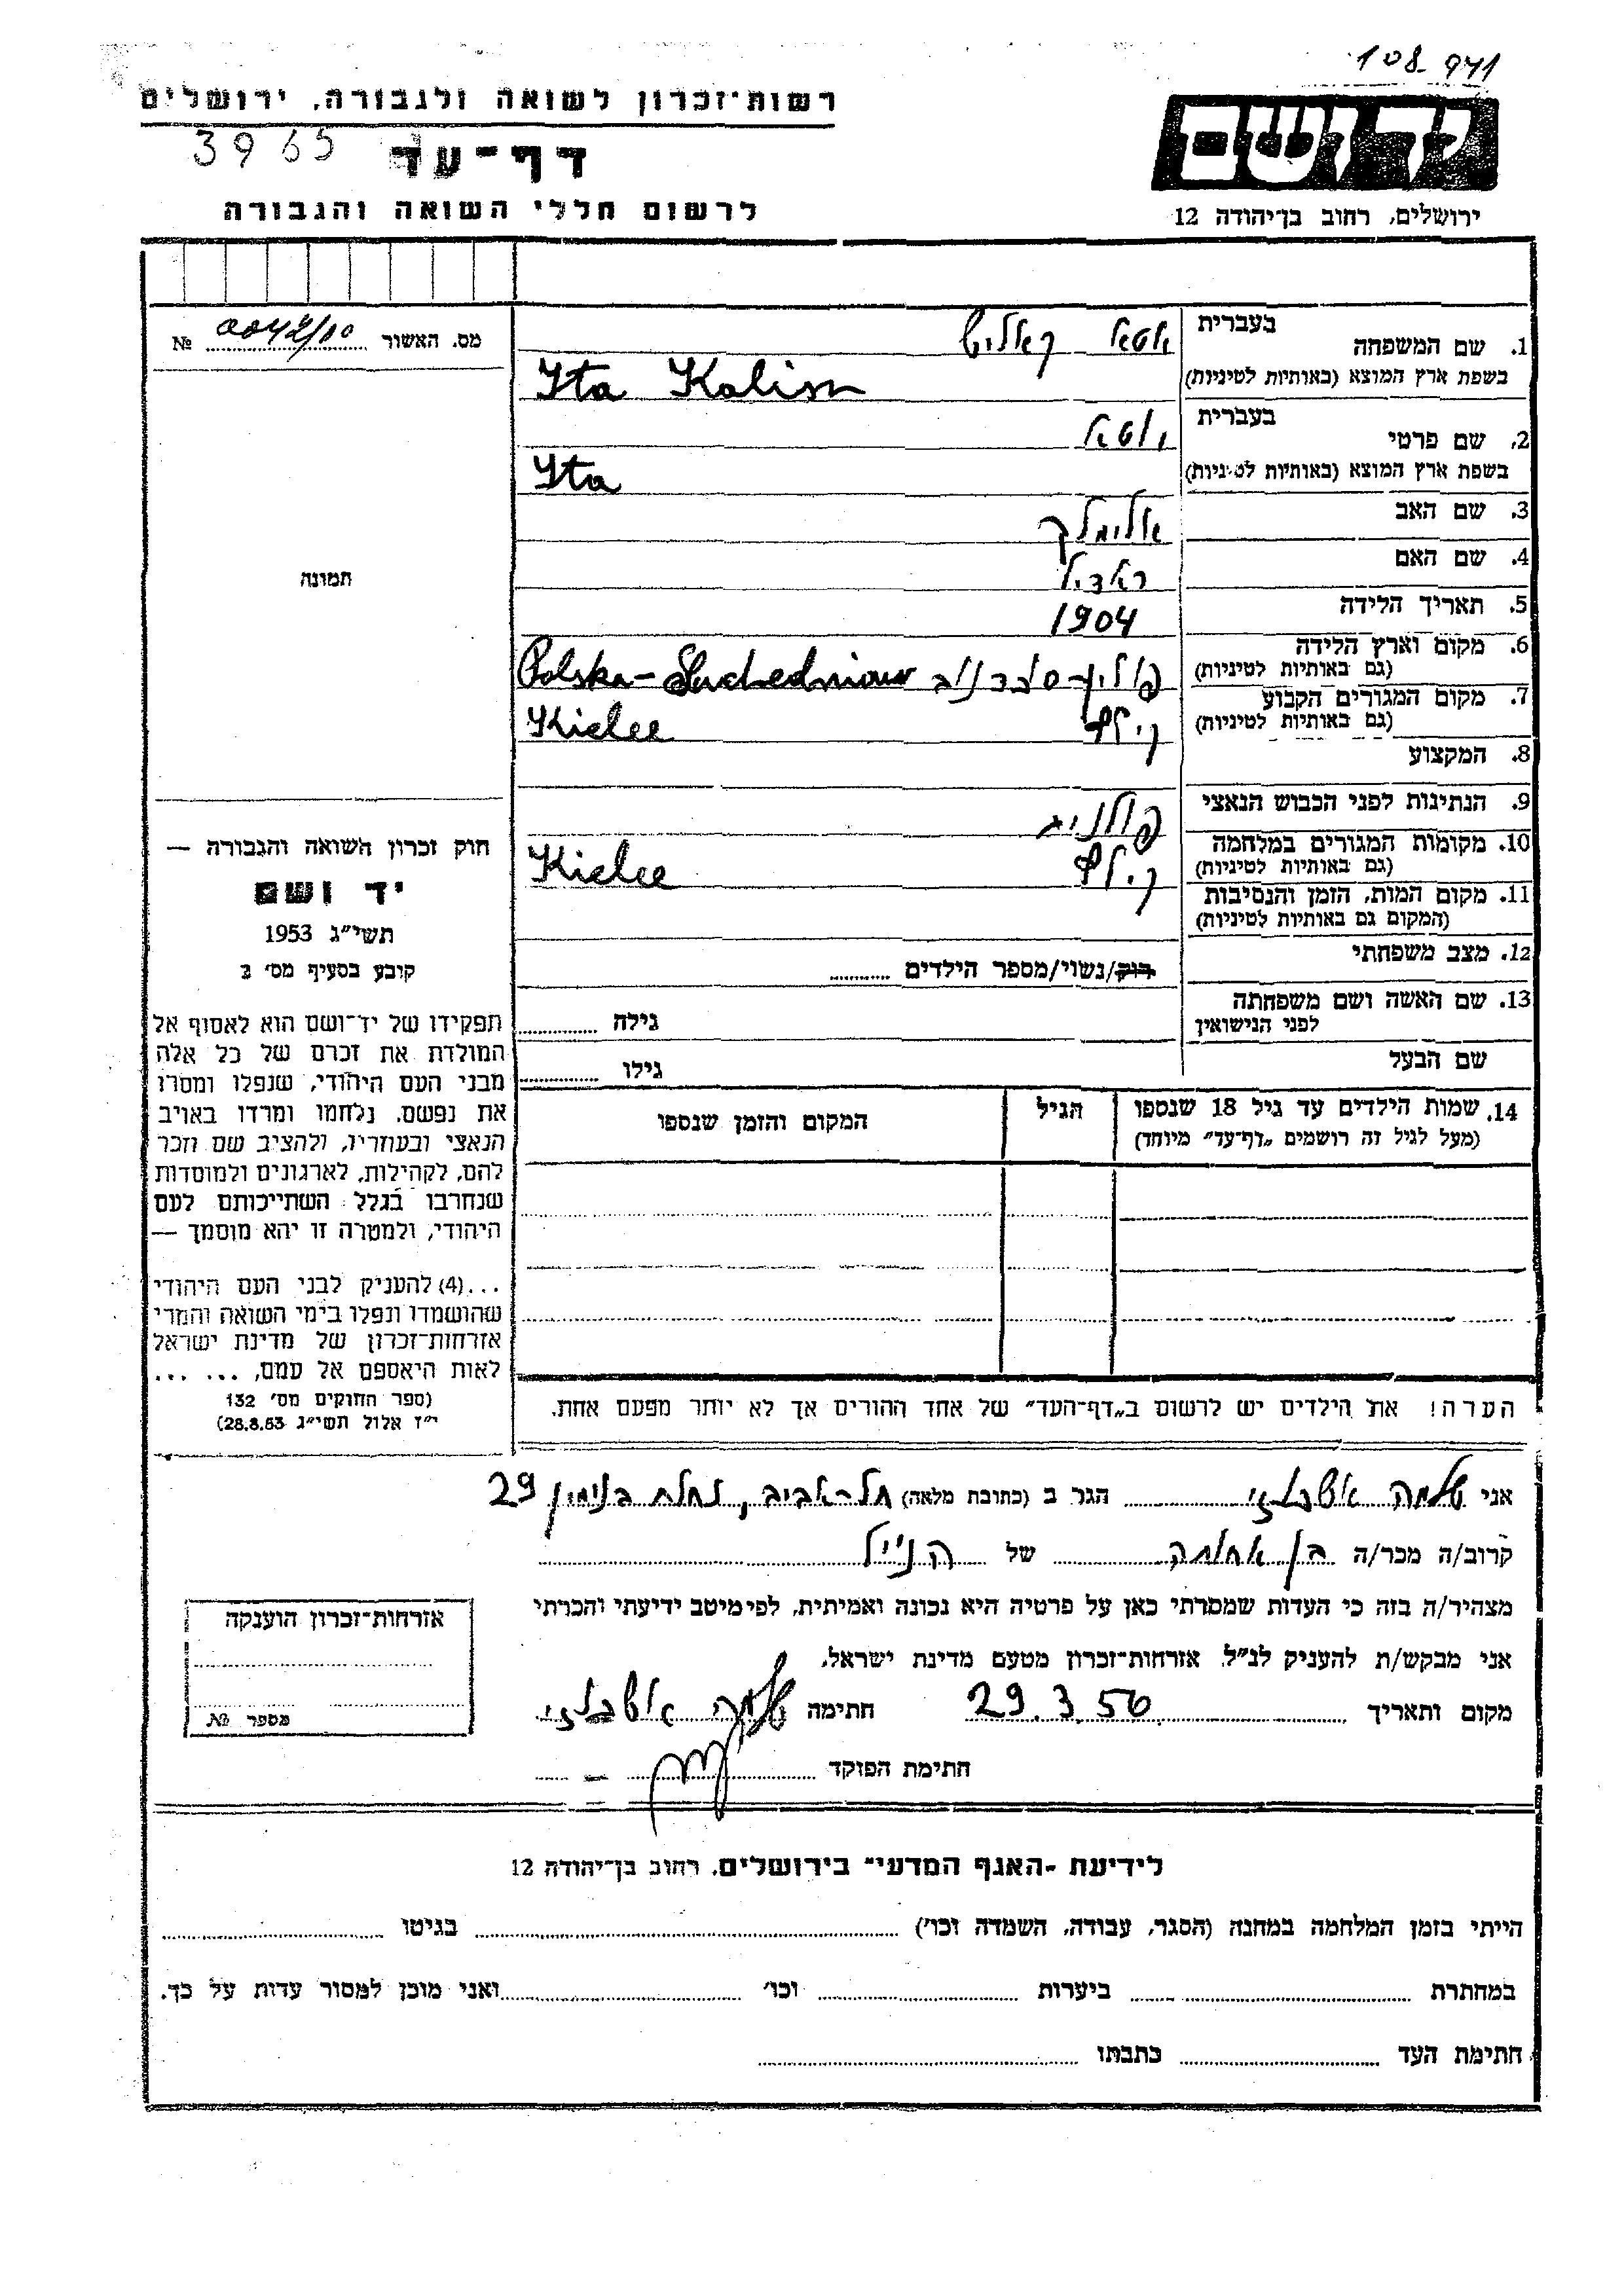 108 941
רשות־זכרון לשואה ולגבורה, ירושלים
3965
דף־עד
לרשום חללי השואה והגבורה
יד ושם
ירושלים, רחוב בן־יהודה 12
מס. האשור №
1. שם המשפחה בעברית אטא קאליש
בשפת ארץ המוצא (באותיות לטיניות) Yta Kalisz
2. שם פרטי בעברית יטא
בשפת ארץ המוצא (באותיות לטיניות) Yta
3. שם האב אלימלך
4. שם האם ראדיל
5. תאריך הלידה 1904
6. מקום וארץ הלידה (גם באותיות לטיניות) פולין־סוכדניוב Polska - Suchedniow
7. מקום המגורים הקבוע (גם באותיות לטיניות) קילץ Kielce
8. המקצוע
9. הנתינות לפני הכבוש הנאצי פולנית
10. מקומות המגורים במלחמה (גם באותיות לטיניות) קילץ Kielce
11. מקום המות, הזמן והנסיבות (המקום גם באותיות לטיניות)
12. מצב משפחתי רוק/נשוי/מספר הילדים
13. שם האשה ושם משפחתה לפני הנישואין גילה
שם הבעל גילו
14. שמות הילדים עד גיל 18 שנספו (מעל לגיל זה רושמים "דף־עד" מיוחד) הגיל המקום והזמן שנספו
תמונה
חוק זכרון השואה והגבורה —
יד ושם
תשי"ג 1953
קובע בסעיף מס' 2
תפקידו של יד־ושם הוא לאסוף אל
המולדת את זכרם של כל אלה
מבני העם היהודי, שנפלו ומסרו
את נפשם, נלחמו ומרדו באויב
הנאצי ובעוזריו, ולהציב שם וזכר
להם, לקהילות, לארגונים ולמוסדות
שנחרבו בגלל השתייכותם לעם
היהודי, ולמטרה זו יהא מוסמך —
...(4) להעניק לבני העם היהודי
שהושמדו ונפלו בימי השואה והמרי
אזרחות־זכרון של מדינת ישראל
לאות היאספם אל עמם, ... ...
(ספר החוקים מס' 132
י"ז אלול תשי"ג 28.8.53)
הערה! את הילדים יש לרשום ב"דף־העד" של אחד ההורים אך לא יותר מפעם אחת.
אני שלמה אשכנזי הגר ב (כתובת מלאה) תל־אביב, נחלת בנימין 29
קרוב/ה מכר/ה בן אחותה של הנ"ל
מצהיר/ה בזה כי העדות שמסרתי כאן על פרטיה היא נכונה ואמיתית, לפי מיטב ידיעתי והכרתי
אני מבקש/ת להעניק לנ"ל אזרחות־זכרון מטעם מדינת ישראל.
מקום ותאריך 29.3.56 חתימה שלמה אשכנזי
חתימת הפוקד
אזרחות־זכרון הוענקה
מספר №
לידיעת ־האגף המדעי" בירושלים, רחוב בן־יהודה 12
הייתי בזמן המלחמה במחנה (הסגר, עבודה, השמדה וכו') בגיטו
במחתרת ביערות וכו' ואני מוכן למסור עדות על כך.
חתימת העד כתבתו